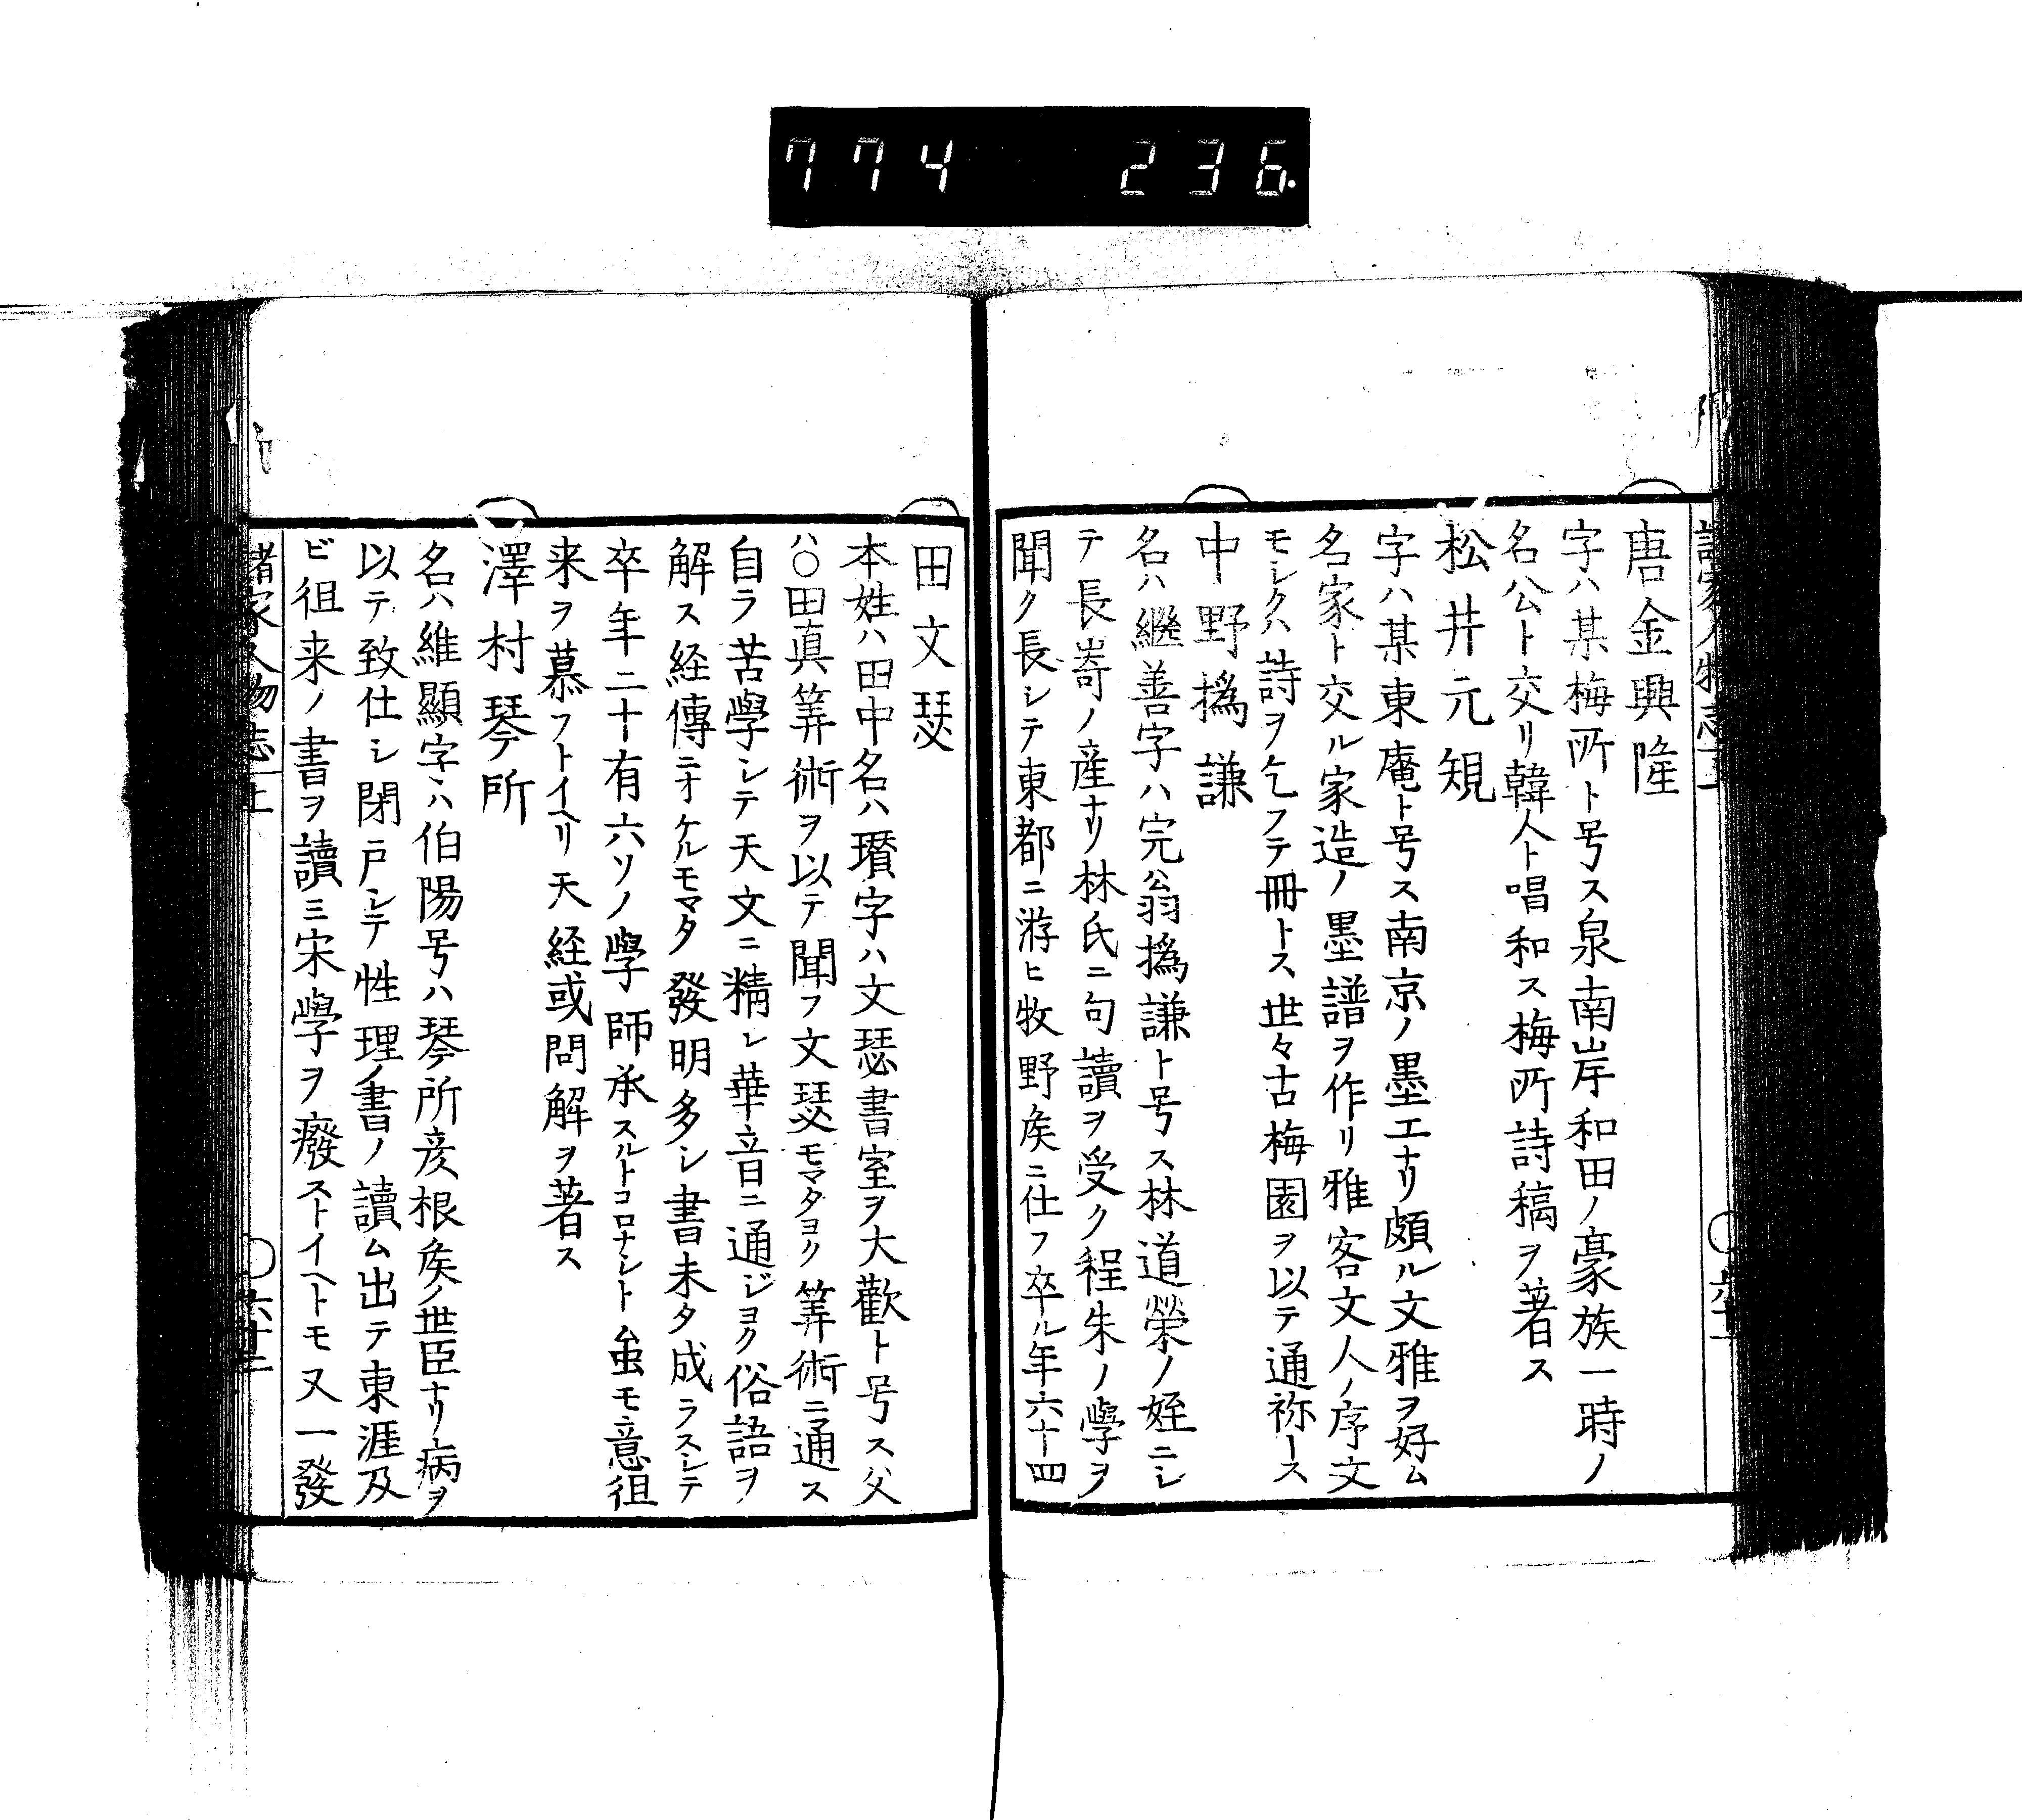 774 236.
唐金興隆
字ハ某梅所ト号ス泉南岸和田ノ豪族一時ノ
名公ト交リ韓人ト唱和ス梅所詩稿ヲ著ス
松井元規
字ハ某東庵ト号ス南京ノ墨工ナリ頗ル文雅ヲ好ム
名家ト交ル家造ノ墨譜ヲ作リ雅客文人ノ序文
モシクハ詩ヲ乞フテ冊トス世々古梅園ヲ以テ通称トス
中野撝謙
名ハ繼善字ハ完翁撝謙ト号ス林道榮ノ姪ニシ
テ長嵜ノ産ナリ林氏ニ句讀ヲ受ク程朱ノ學ヲ
聞ク長レテ東都ニ游ヒ牧野矦ニ仕フ卒ル年六十四
田文瑟
本姓ハ田中名ハ瓚字ハ文瑟書室ヲ大歡ト号ス父
ハ〇田真筭術ヲ以テ聞フ文瑟モマタヨク筭術ニ通ス
自ラ苦學シテ天文ニ精レ華音ニ通ジヨク俗語ヲ
解ス経傳ニオケルモマタ發明多シ書未タ成ラスシテ
卒年二十有六ソノ學師承スルトコロナシト虽モ意徂
来ヲ慕フトイヘリ天経或問解ヲ著ス
澤村琴所
名ハ維顯字ハ伯陽号ハ琴所彦根矦ノ世臣ナリ病ヲ
以テ致仕シ閉戸シテ性理ノ書ノ讀ム出テ東涯及
ビ徂来ノ書ヲ讀ミ宋學ヲ癈ストイヘトモ又一發
諸家人物志 上 〇六十二